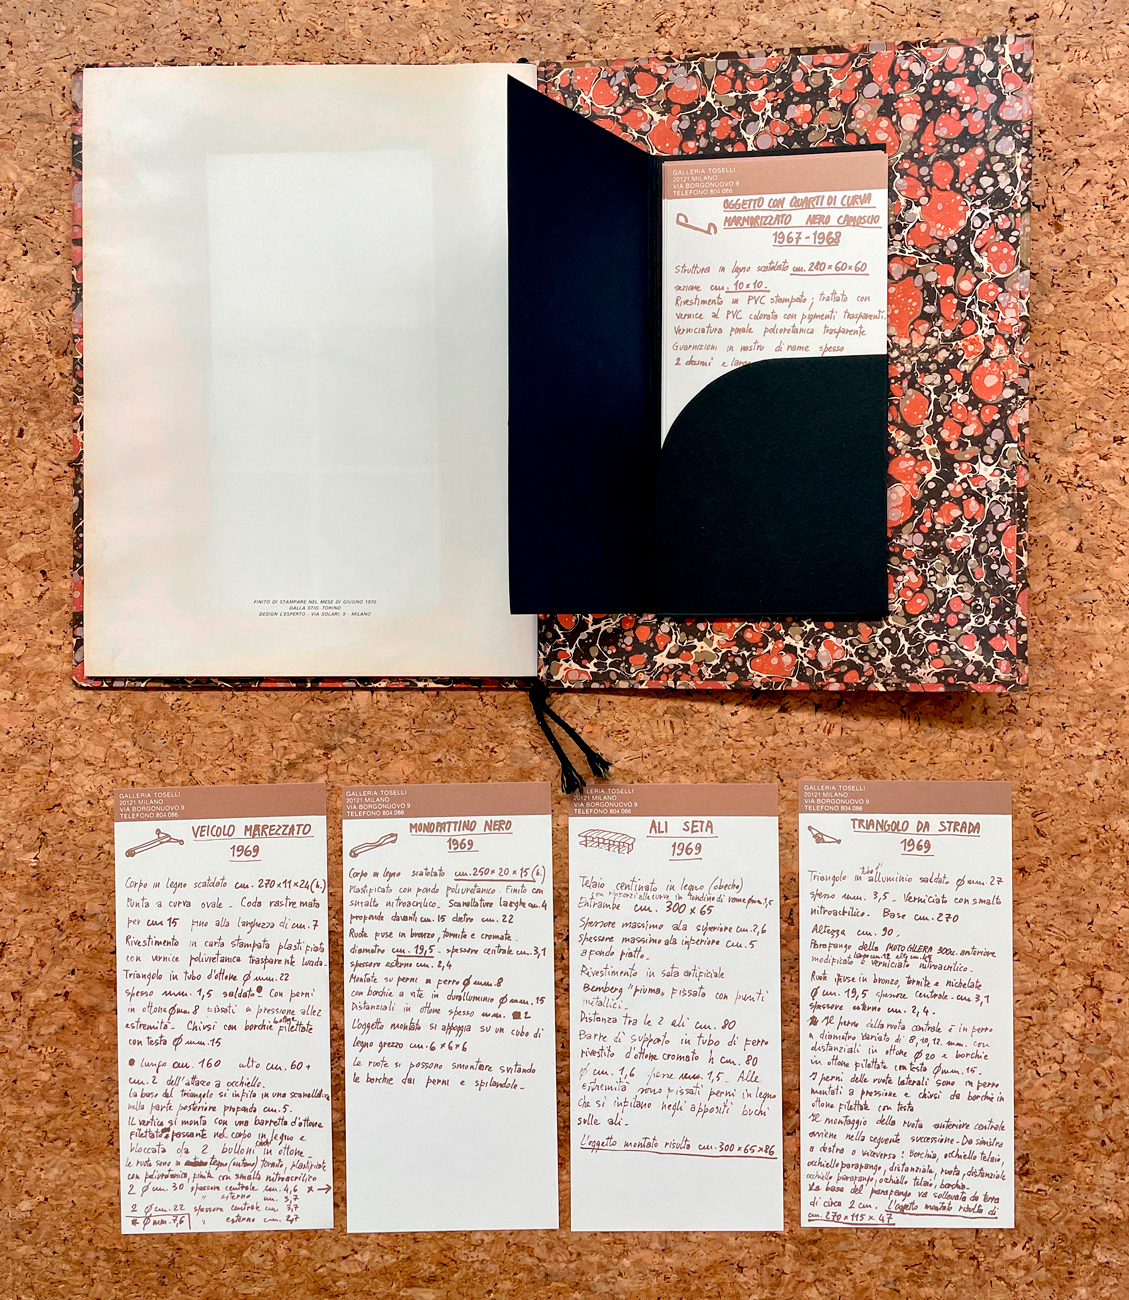 GALLERIA TOSELLI
20121 MILANO
VIA BORGONUOVO 9
TELEFONO 804 086
OGGETTO CON QUARTI DI CURVA
MARMORIZZATO NERO CAMOSCIO
1967-1968
Struttura in legno scatolato cm. 280×60×60
sezione cm. 10×10.
Rivestimento in PVC stampato; trattato con
vernice al PVC colorata con pigmenti trasparenti.
Verniciatura finale poliuretanica trasparente
Guarnizioni in nastro di rame spesso
2 decimi e
FINITO DI STAMPARE NEL MESE DI GIUGNO 1970
DALLA STIG-TORINO
DESIGN L'ESPERTO - VIA SOLARI, 9 - MILANO
GALLERIA TOSELLI
20121 MILANO
VIA BORGONUOVO 9
TELEFONO 804 086
VEICOLO MAREZZATO
1969
Corpo in legno scatolato cm. 270×11×24(h.)
Punta a curva ovale. Coda rastremata
per cm 15 fino alla larghezza di cm. 7
Rivestimento in carta stampata plastificata
con vernice poliuretanica trasparente lucida.
Triangolo in tubo d'ottone Ø mm. 22
spesso mm. 1,5 saldato con perni
in ottone Ø mm. 8 fissati a pressione alle
estremità. Chiusi con borchie filettate
con testa Ø mm. 15
lungo cm. 160 alto cm. 60+
cm. 2 dell'attacco a occhiello.
La base del triangolo si infila in una scanellatura
nella parte posteriore profonda cm. 5.
IL vertice si monta con una barretta d'ottone
filettata passante nel corpo in legno e
bloccata da 2 bulloni in ottone.
le ruote sono in legno tornito, plastificate
con poliuretanica, finite con smalto nitroacrilico
2 Ø cm. 30 spessore centrale cm. 4,6
" esterno cm. 3,7
2 Ø cm. 22 spessore centrale cm. 3,7
Ø mm. 7,6 " esterno cm. 2,7
GALLERIA TOSELLI
20121 MILANO
VIA BORGONUOVO 9
TELEFONO 804 086
MONOPATTINO NERO
1969
Corpo in legno scatolato cm. 250×20×15(h.)
Plastificato con fondo poliuretanico. Finito con
smalto nitroacrilico. Scanellature larghe cm. 4
profonde davanti cm. 15 dietro cm. 22
Ruote fuse in bronzo, tornite e cromate.
diametro cm. 19,5. spessore centrale cm. 3,1
spessore esterno cm. 2,4
Montate su perni in ferro Ø mm. 8
con borchie a vite in duralluminio Ø mm. 15
Distanziali in ottone spesso mm. 2
L'oggetto montato si appoggia su un cubo di
legno grezzo cm. 6×6×6
Le ruote si possono smontare svitando
le borchie dai perni e sfilandole.
GALLERIA TOSELLI
20121 MILANO
VIA BORGONUOVO 9
TELEFONO 804 086
ALI SETA
1969
Telaio centinato in legno (obeche)
con rinforzi alle curve in tondino di rame Ø mm. 1,5
Entrambe cm. 300×65
Spessore massimo ala superiore cm. 2,6
Spessore massimo ala inferiore cm. 5
a fondo piatto.
Rivestimento in seta artificiale
Bemberg "piuma" fissata con punti
metallici.
Distanza tra le 2 ali cm. 80
Barre di supporto in tubo di ferro
rivestito d'ottone cromato h cm. 80
Ø cm. 1,6 spesse mm. 1,5. Alle
estremità sono fissati perni in legno
che si infilano negli appositi buchi
sulle ali.
L'oggetto montato risulta cm. 300×65×86
GALLERIA TOSELLI
20121 MILANO
VIA BORGONUOVO 9
TELEFONO 804 086
TRIANGOLO DA STRADA
1969
Triangolo in tubo d'alluminio saldato Ø mm. 27
spesso mm. 3,5. Verniciato con smalto
nitroacrilico. Base cm. 270
Altezza cm. 90.
Parafango della MOTO GILERA 300cc. anteriore
modificato largo cm. 12 alto cm. 47 e verniciato nitroacrilico.
Ruote fuse in bronzo tornite e nichelate
Ø cm. 19,5 spessore centrale cm 3,1
spessore esterno cm. 2,4.
Il perno della ruota centrale è in ferro
a diametro variato di 8,10,12 mm. con
distanziali in ottone Ø 20 e borchie
in ottone filettate con testa Ø mm. 15.
I perni delle ruote laterali sono in ferro
montati a pressione e chiusi da borchie in
ottone filettate con testa
Il montaggio della ruota anteriore centrale
avviene nella seguente successione. Da sinistra
a destra o viceversa: Borchia, occhiello telaio,
occhiello parafango, distanziale, ruota, distanziale
occhiello parafango, occhiello telaio, borchia.
La base del parafango va sollevata da terra
di circa 2 cm. L'oggetto montato risulta di
cm. 270×115×47